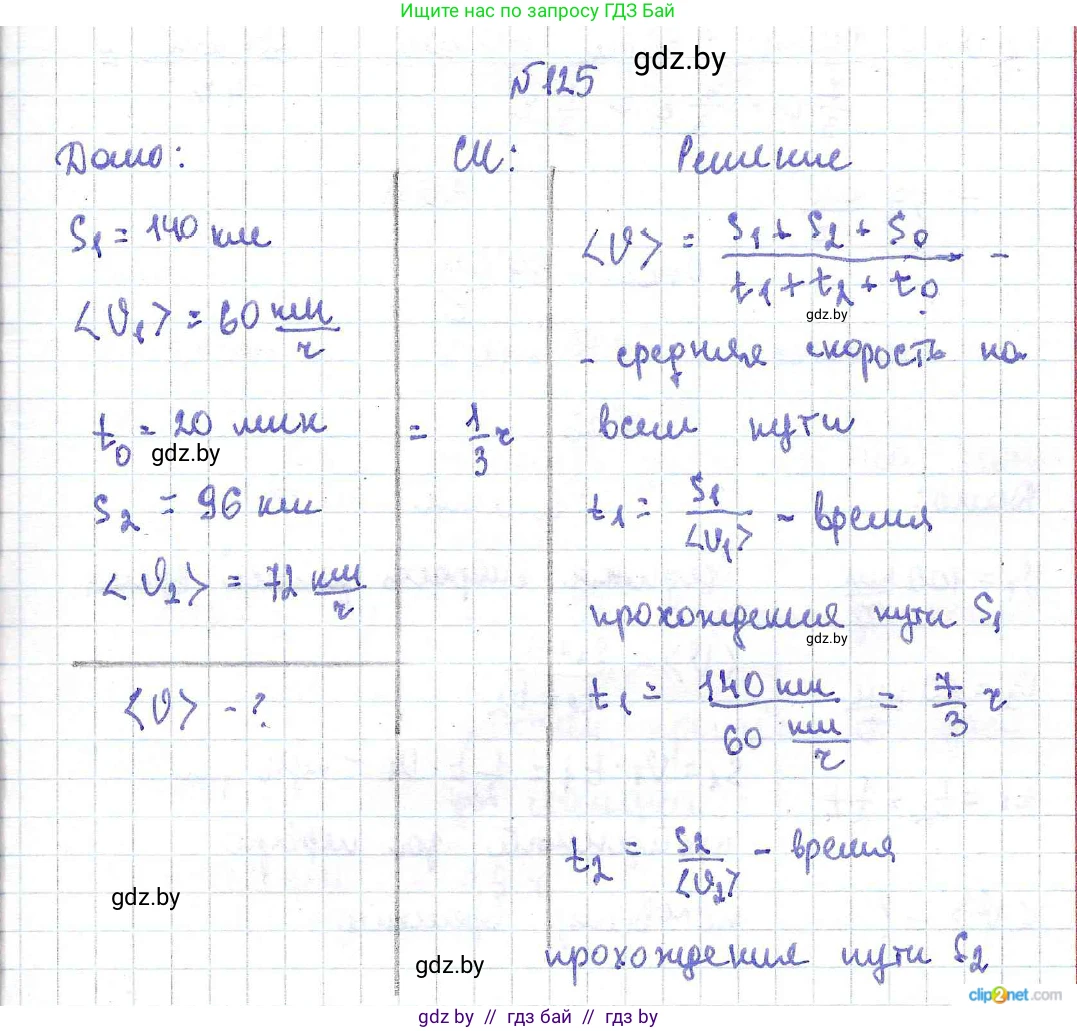 Ищите нас по запросу ГДЗ Бай
gdz.by
№125
Дано:
S₁ = 140 км
⟨υ₁⟩ = 60 км/ч
t₀ = 20 мин
gdz.by
S₂ = 96 км
⟨υ₂⟩ = 72 км/ч
⟨υ⟩ - ?
СИ:
= 1/3 ч
Решение
⟨υ⟩ = (S₁ + S₂ + S₀)/(t₁ + t₂ + t₀) -
gdz.by
- средняя скорость на
всем пути
t₁ = S₁/⟨υ₁⟩ - время
прохождения пути S₁
gdz.by
t₁ = 140 км/60 км/ч = 7/3 ч
t₂ = S₂/⟨υ₂⟩ - время
gdz.by
прохождения пути S₂
gdz.by
clip2net.com
gdz by // гдз бай // гдз by